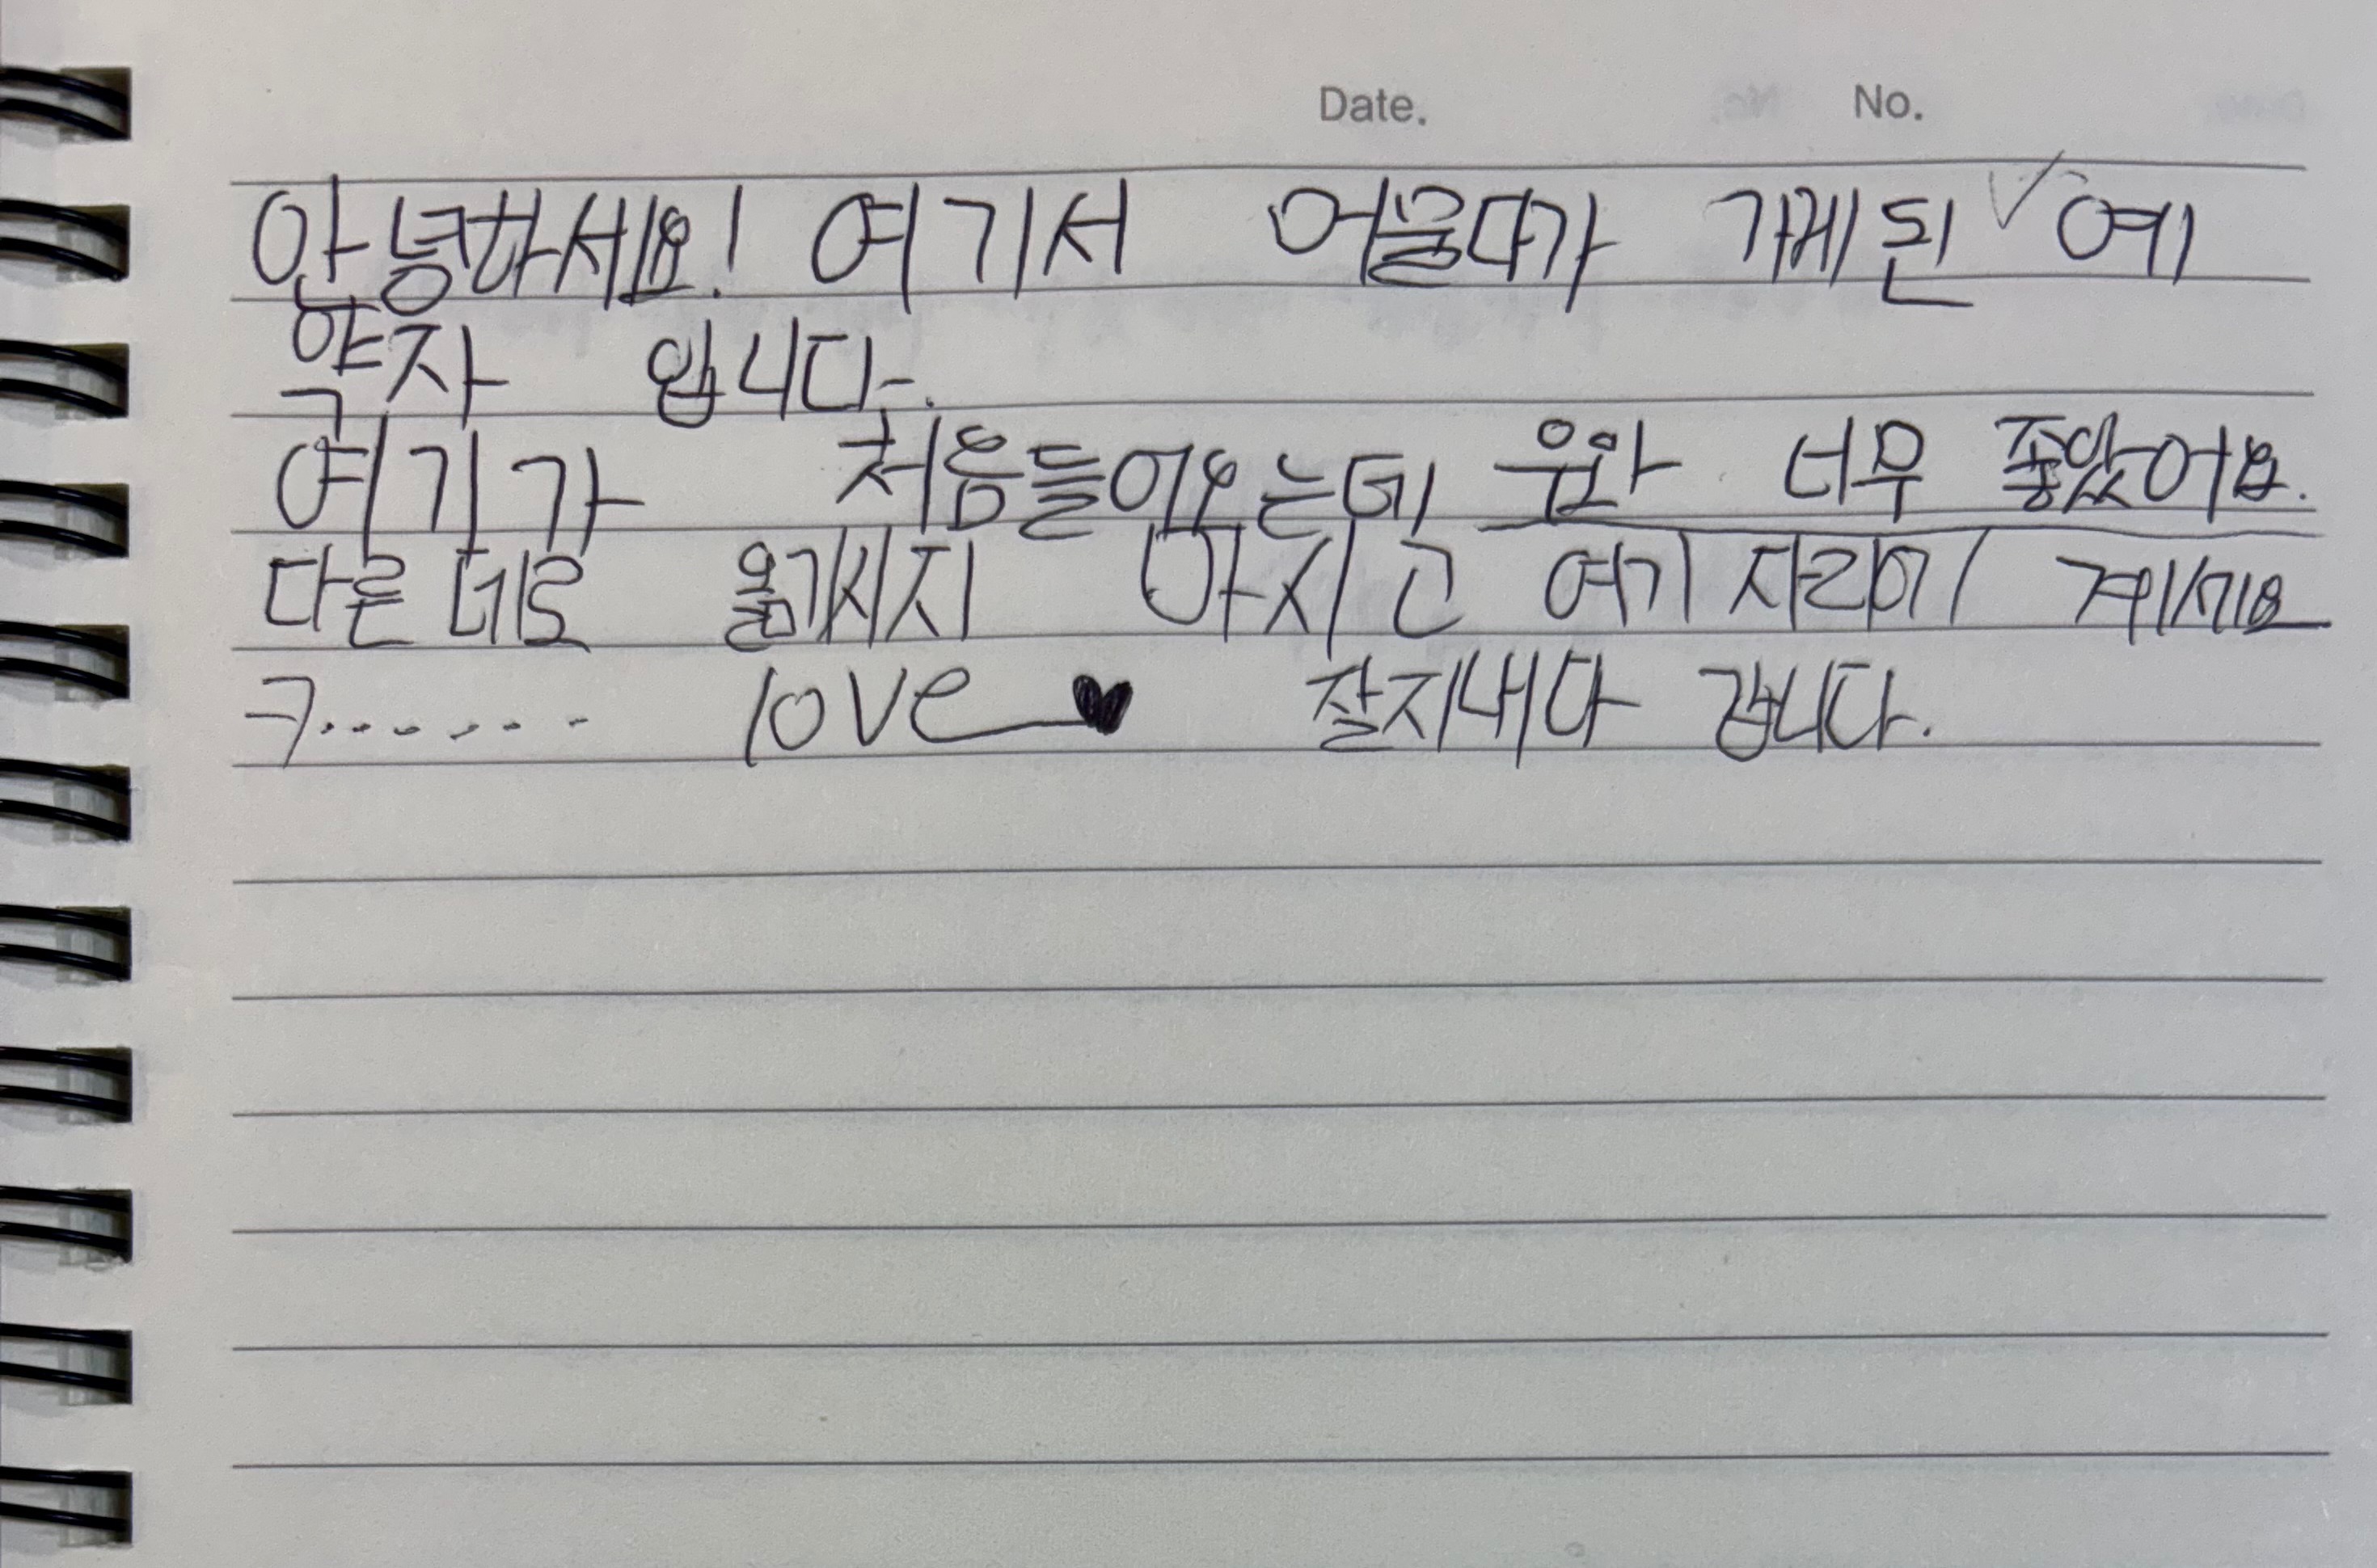 Date. No.
안녕하세요! 여기서 머물다가 가게 된 예
약자 입니다.
여기가 처음들어오는데 우와 너무 좋았어요.
다른데로 옮기시지 마시고 여기 자리에 계세요
ㅋ....... love ♥ 잘지내다 갑니다.